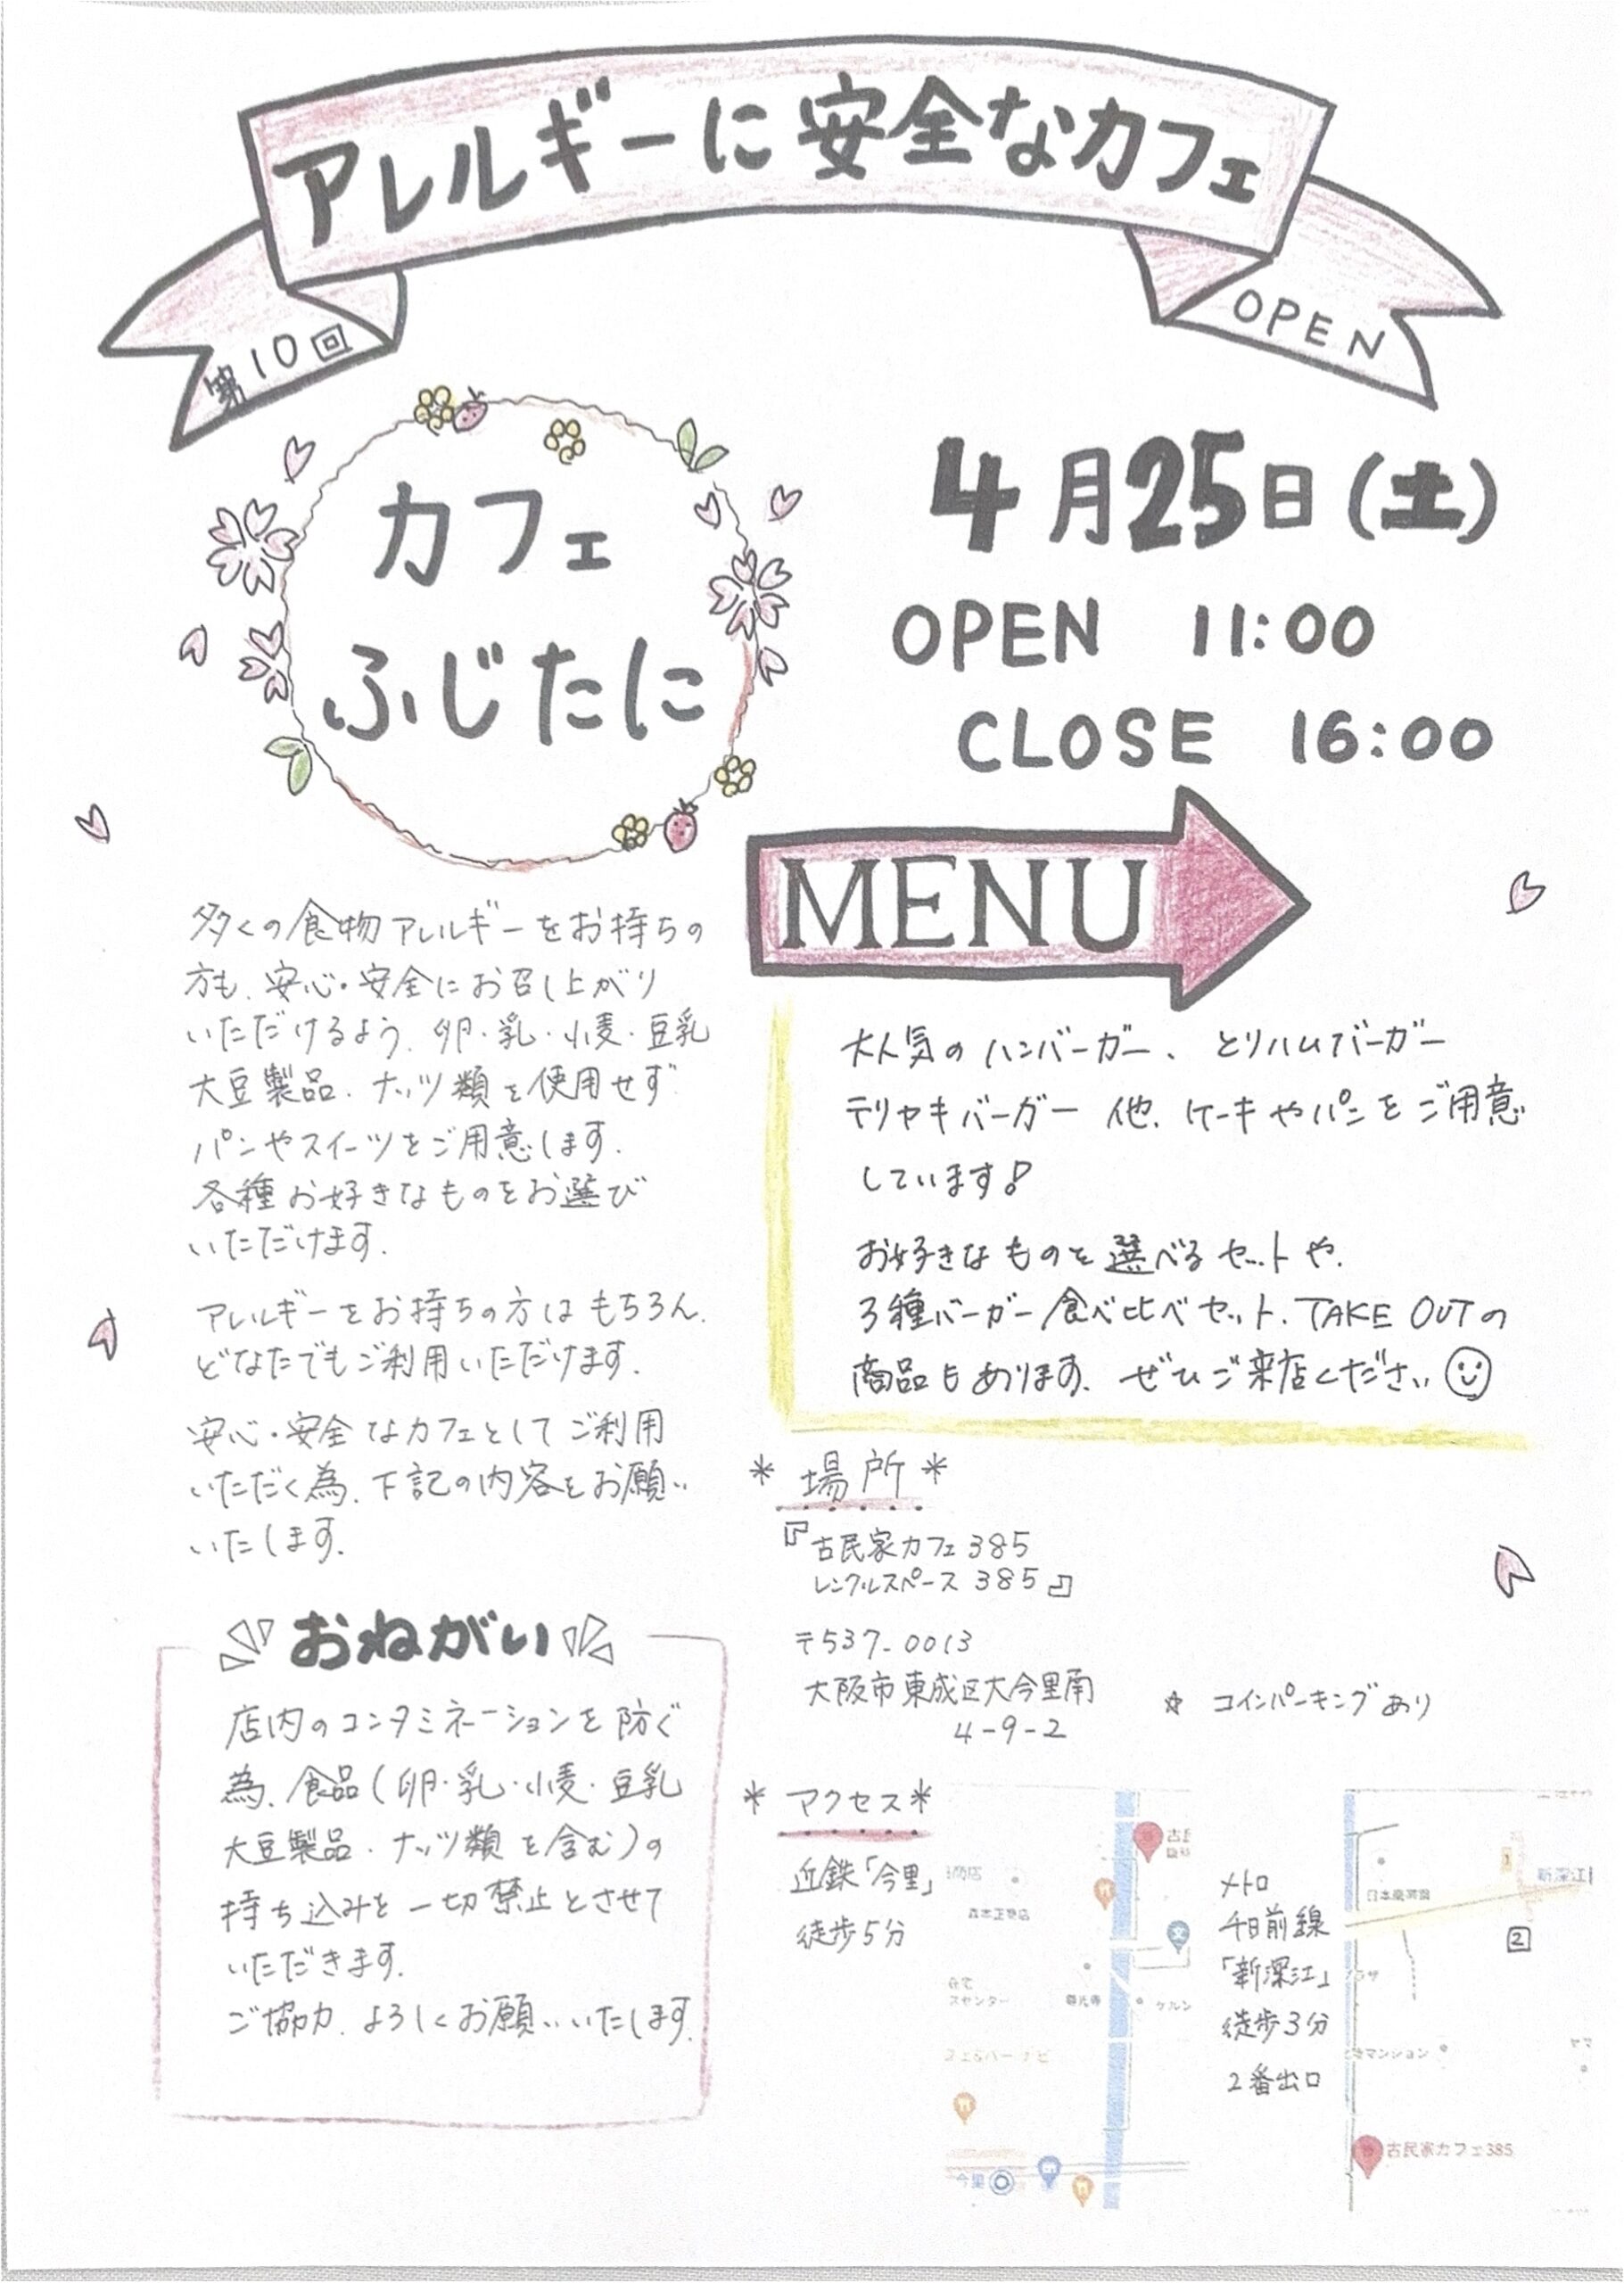 アレルギーに安全なカフェ
第10回
OPEN
カフェ
ふじたに
4月25日(土)
OPEN 11:00
CLOSE 16:00
MENU
多くの食物アレルギーをお持ちの
方も、安心・安全にお召し上がり
いただけるよう、卵・乳・小麦・豆乳
大豆製品・ナッツ類を使用せず
パンやスイーツをご用意します。
各種お好きなものをお選び
いただけます。
アレルギーをお持ちの方はもちろん、
どなたでもご利用いただけます。
安心・安全なカフェとしてご利用
いただく為、下記の内容をお願い
いたします。
おねがい
店内のコンタミネーションを防ぐ
為、食品(卵・乳・小麦・豆乳
大豆製品・ナッツ類を含む)の
持ち込みを一切禁止とさせて
いただきます。
ご協力、よろしくお願いいたします。
大人気のハンバーガー、とりハムバーガー
テリヤキバーガー他、ケーキやパンをご用意
しています!
お好きなものを選べるセットや、
3種バーガー食べ比べセット、TAKE OUTの
商品もあります。ぜひご来店ください
*場所*
『古民家カフェ385
レンタルスペース385』
〒537-0013
大阪市東成区大今里南
4-9-2
☆ コインパーキングあり
*アクセス*
近鉄「今里」
徒歩5分
今里
メトロ
千日前線
「新深江」
徒歩3分
2番出口
新深江
2
マンション
古民家カフェ385